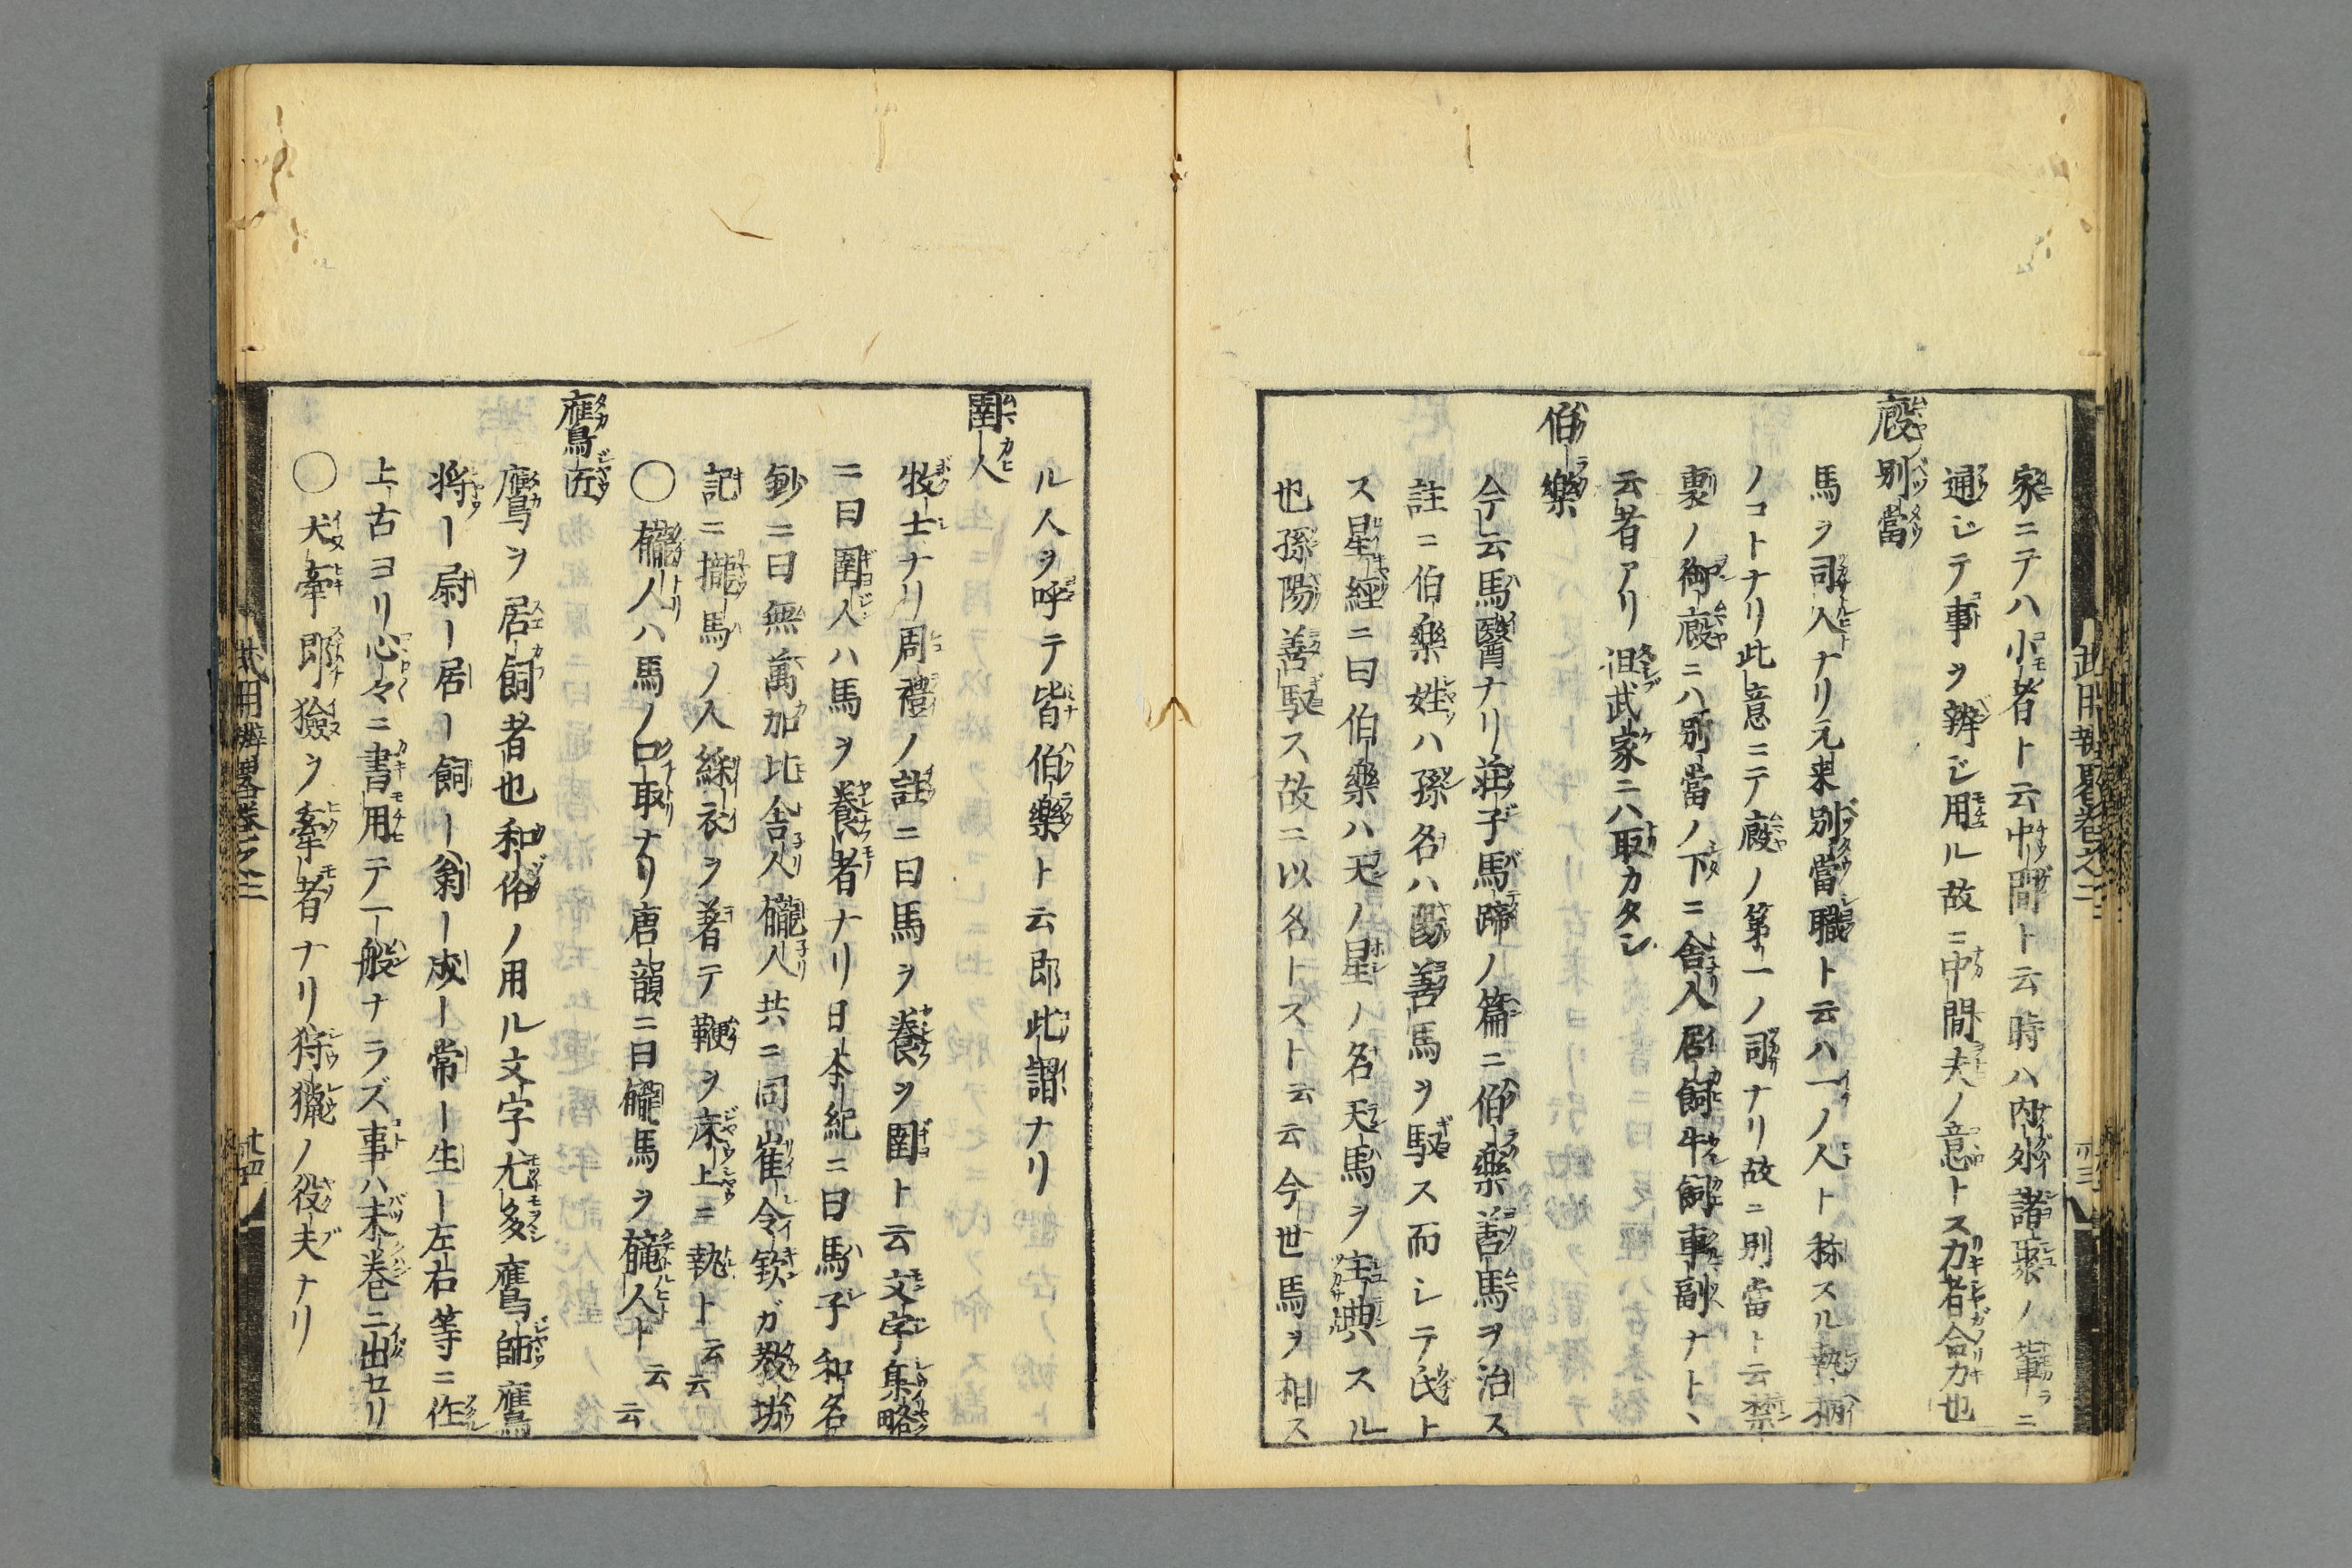 家ニテハ小者ト云中間ト云時ハ内外諸衆ノ輩ニ
通シテ事ヲ辨ジ用ル故ニ中間夫ノ意トス力者命力也
廄別當
馬ヲ司人ナリ元来別當職ト云ハ一ノ人ト称スル執柄
ノコトナリ此意ニテ廄ノ第一ノ司ナリ故ニ別當ト云禁
裏ノ御廄ニハ別當ノ下ニ舎人居飼牛飼車副ナトヽ
云者アリ但武家ニハ取カタシ
伯樂
今云馬醫ナリ莊子馬蹄ノ篇ニ伯樂善馬ヲ治ス
註ニ伯樂姓ハ孫名ハ陽善馬ヲ馭ス而シテ氏ト
ス星經ニ曰伯樂ハ天ノ星ノ名天馬ヲ主典スル
也孫陽善馭ス故ニ以名トスト云云今世馬ヲ相ス
ル人ヲ呼テ皆伯樂ト云即此謂ナリ
圉人
牧士ナリ周禮ノ註ニ曰馬ヲ養ヲ圉ト云文字集略
ニ曰圉人ハ馬ヲ養者ナリ日本紀ニ曰馬子和名
鈔ニ曰無萬加比舎人龓人共ニ同崔令欽ガ教坊
記ニ攏馬ノ人綵衣ヲ着テ鞭ヲ床上ニ執ト云云
〇龓人ハ馬ノ口取ナリ唐韻ニ曰龓馬ヲ龓人ト云云
鷹匠
鷹ヲ居飼者也和俗ノ用ル文字尤多鷹師鷹
将ー尉ー居ー飼ー翁ー成ー常ー生ー左右等ニ作
上古ヨリ心々ニ書用テ一般ナラズ事ハ末巻ニ出セリ
〇犬牽即獫ヲ牽者ナリ狩獵ノ役夫ナリ
武用辨畧巻之三
廿四